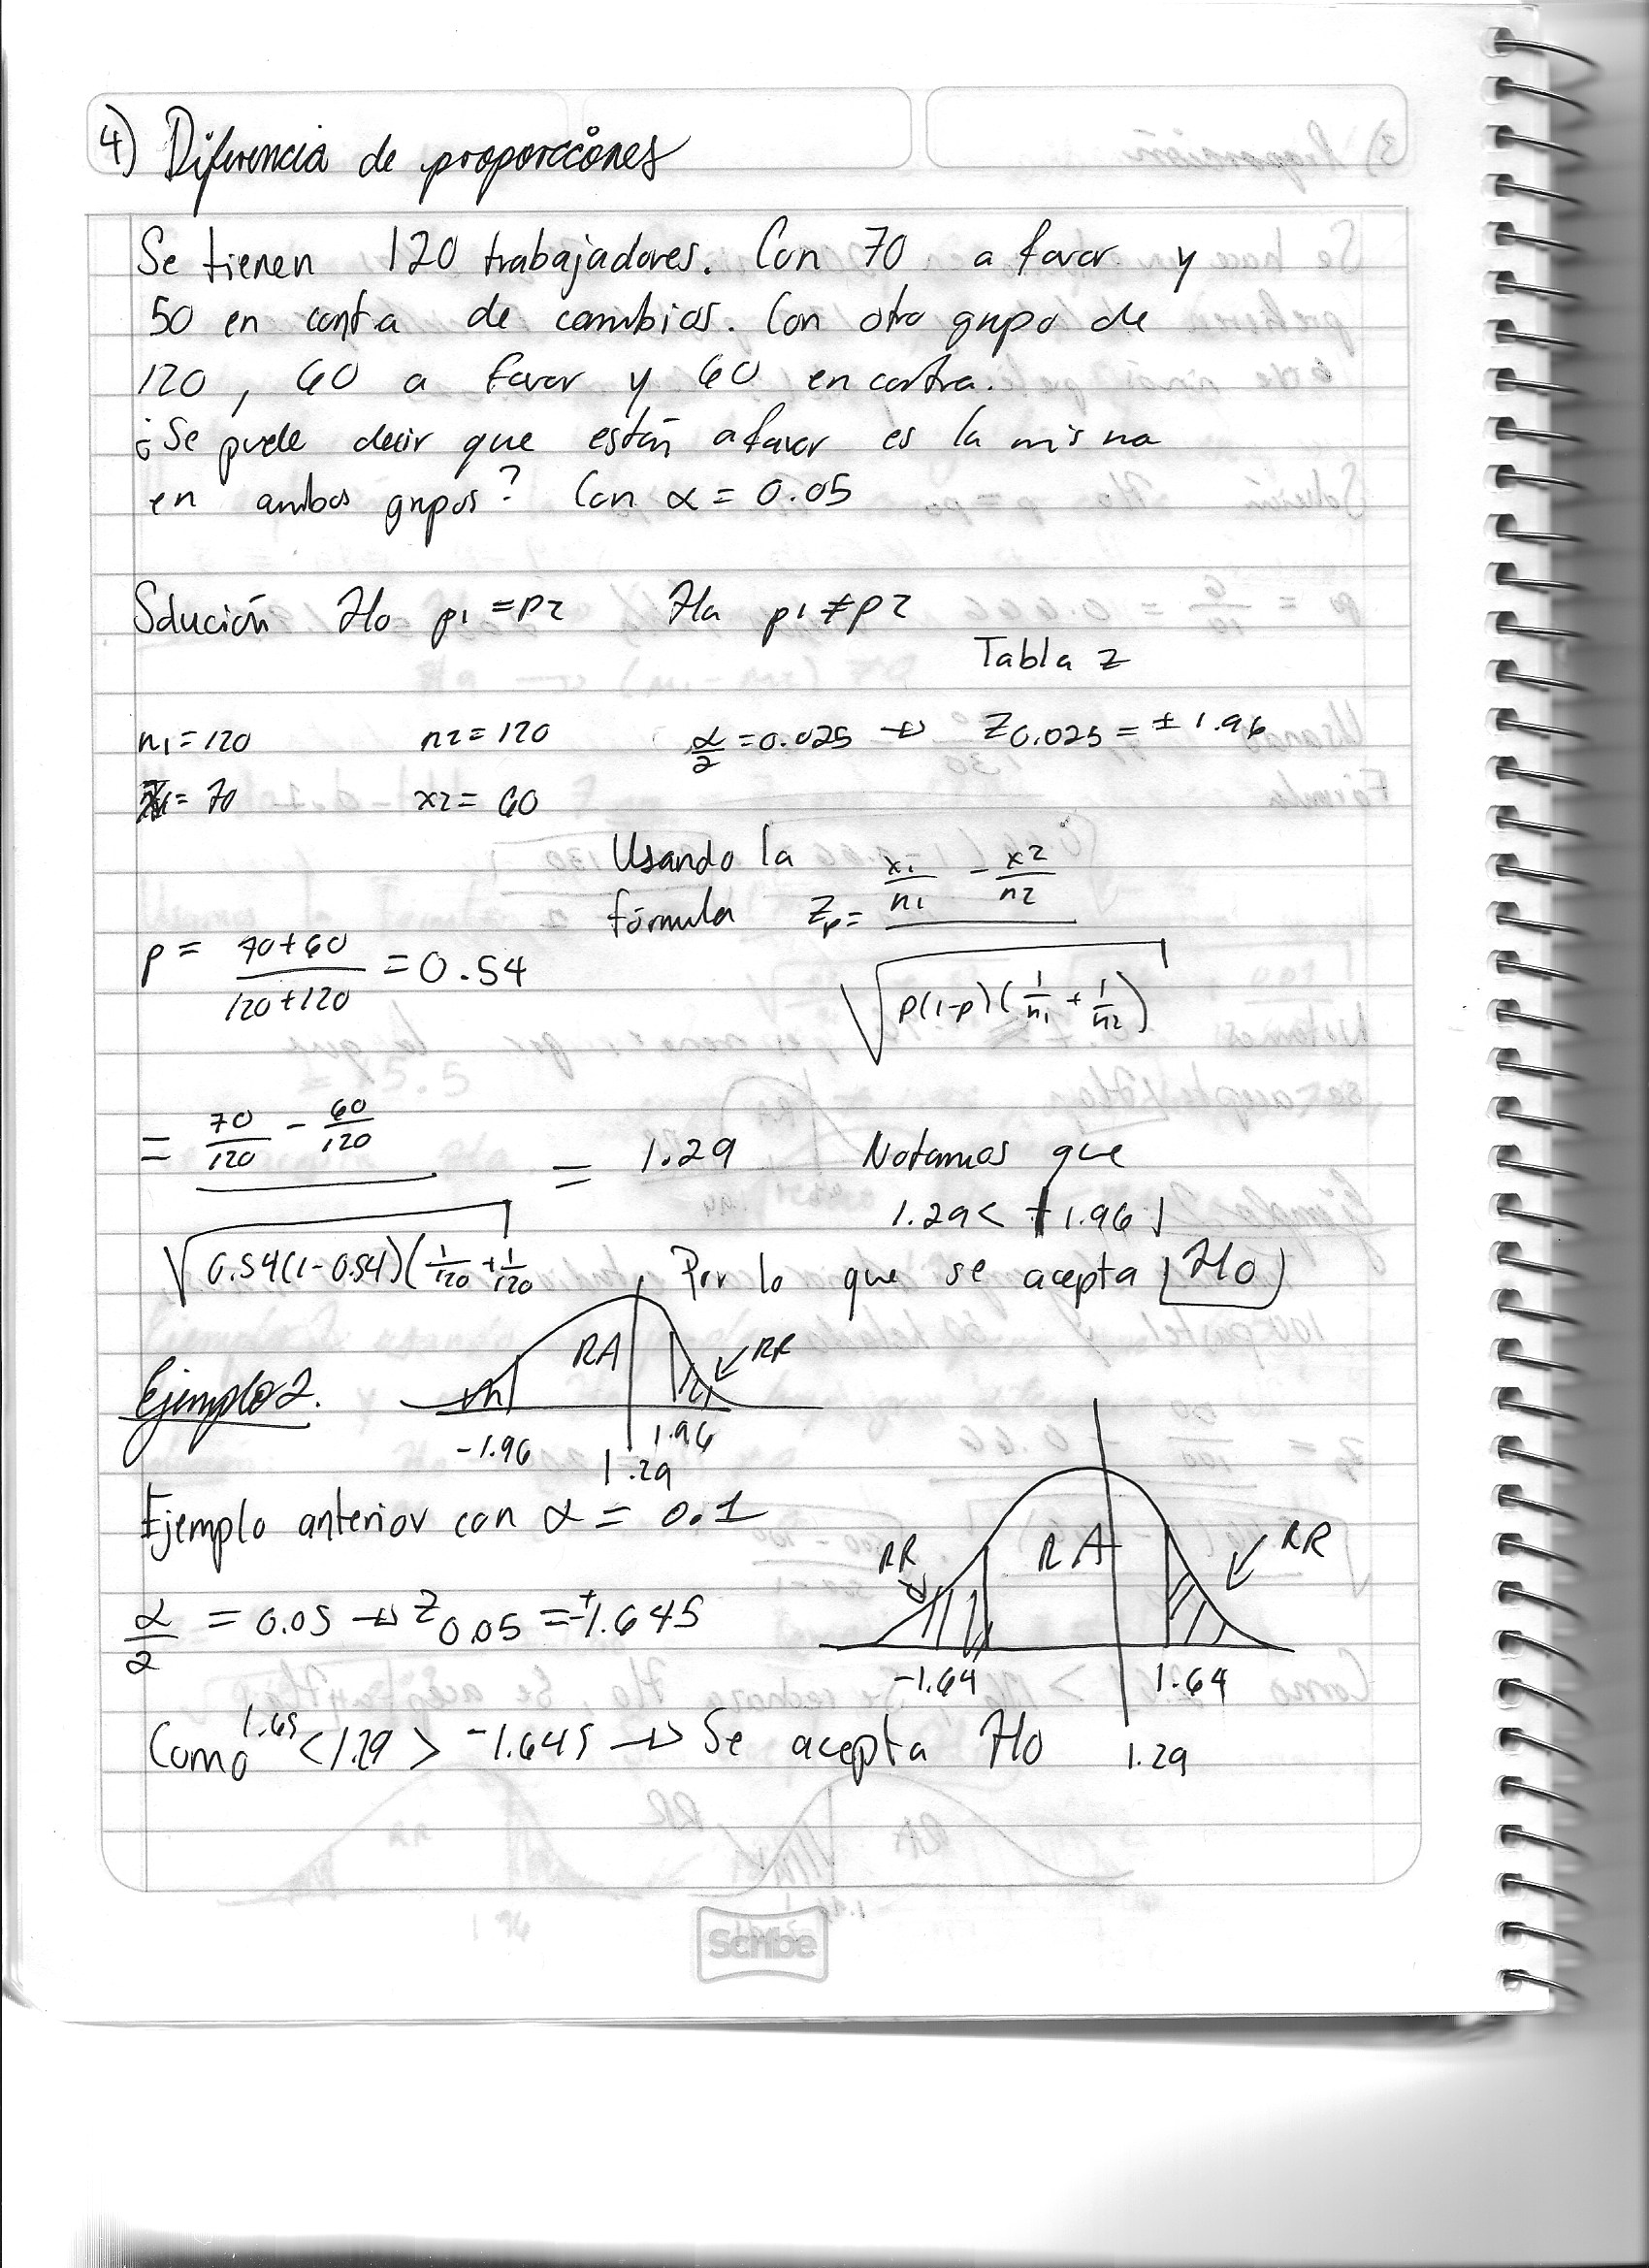 4) Diferencia de proporciones
Se tienen 120 trabajadores. Con 70 a favor y
50 en conta de cambios. Con otro grupo de
120, 60 a favor y 60 en contra.
¿Se puede decir que están a favor es la misma
en ambos grupos? Con α = 0.05
Solución Ho p1 = p2 Ha p1 ≠ p2
Tabla z
n1 = 120 n2 = 120 α/2 = 0.025 → Z0.025 = ± 1.96
x1 = 70 x2 = 60
Usando la
fórmula Zp = (x1/n1 - x2/n2) / √(p(1-p)(1/n1 + 1/n2))
p = (70+60)/(120+120) = 0.54
= (70/120 - 60/120) / √(0.54(1-0.54)(1/120 + 1/120 = 1.29 Notamos que
1.29 < +1.96
Por lo que se acepta Ho
RA RR
Ejemplo 2.
-1.96 1.96
1.29
Ejemplo anterior con α = 0.1
RR RA RR
α/2 = 0.05 → Z0.05 = ±1.645
-1.64 1.64
Como 1.65 < 1.29 > -1.645 → Se acepta Ho 1.29
Scribe